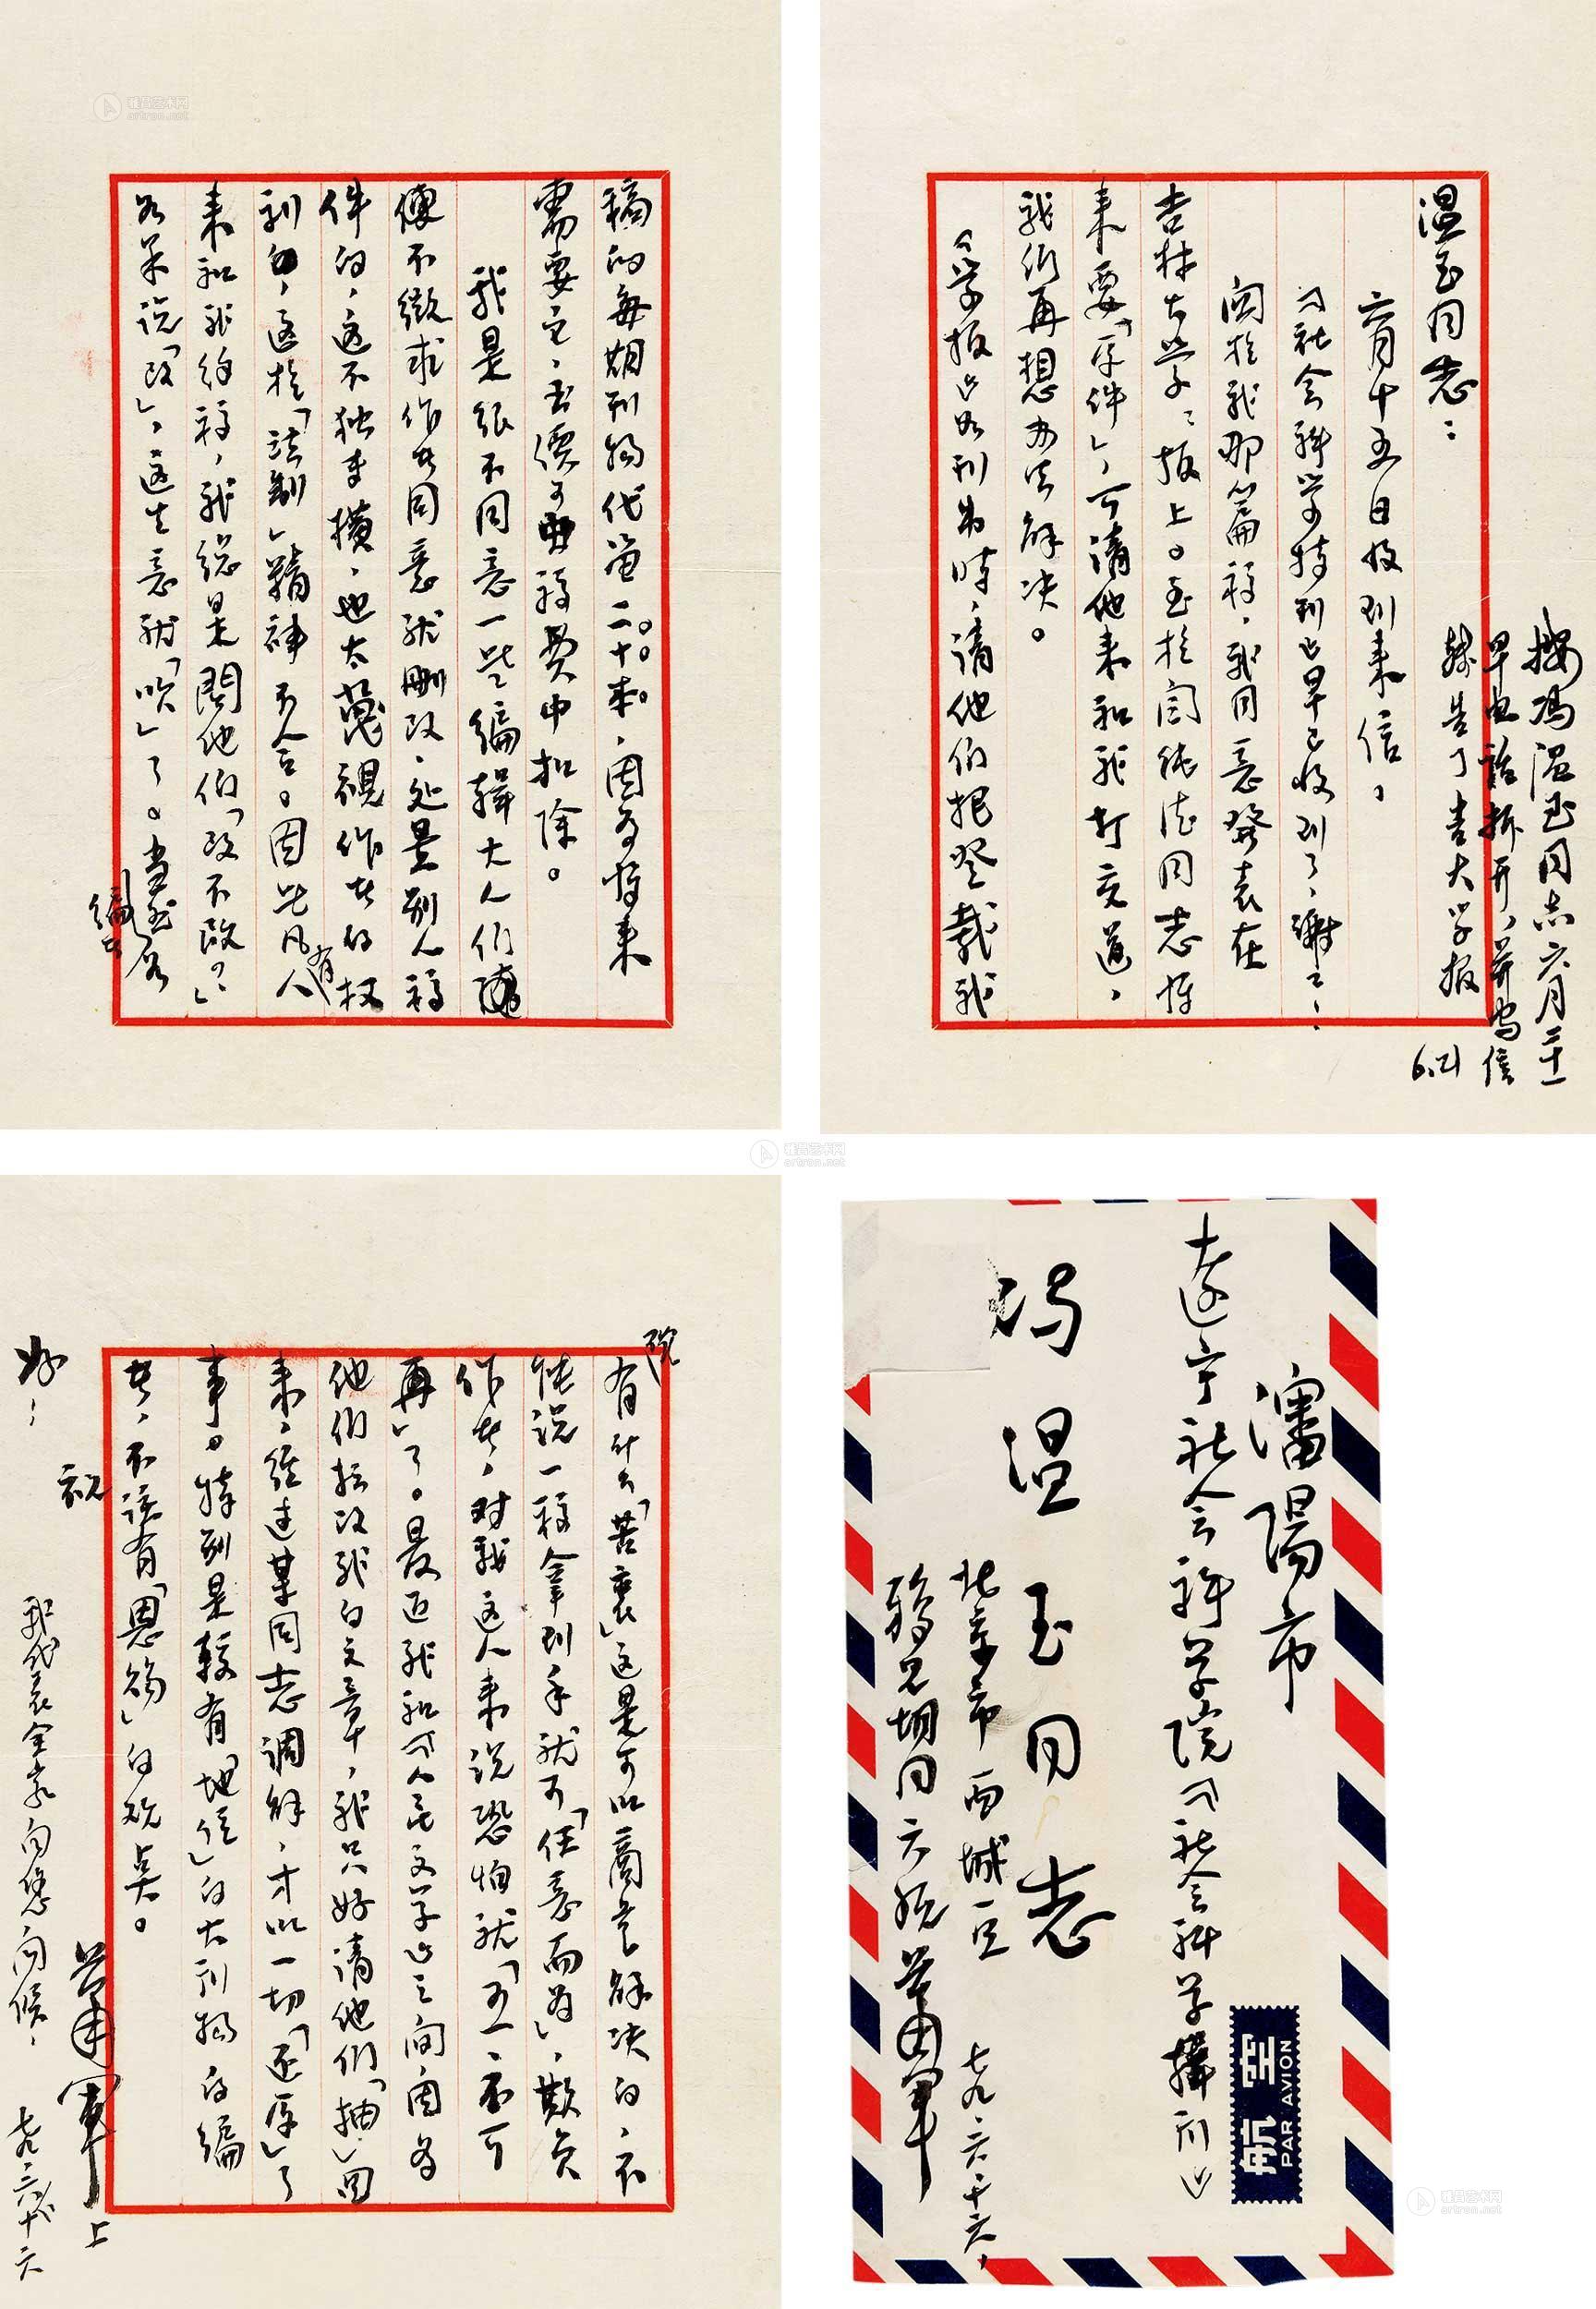 温玉同志：
六月十五日收到来信，
《社会科学特刊》早已收到了，谢谢！
闗於我那篇稿，我同意發表在
吉林大学学报上。至於闫纯德同志将
来要「原件」，可请他来和我打交道，
我们再想办法解决。
《学报》如刊出时，请他们把登载我
按冯温玉同志六月二十一
早电话拆开，并写信
转告了吉大学报
6.21
稿的每期刊物代留二十本，因为将来
需要它，书價可由稿费中扣除。
我是很不同意一些编辑大人们随
便不徵求作者同意就删改、处置别人稿
件的，这不独专横，也太蔑視作者的权
利的，这於「法制」精神不合。因此凡有人
来和我约稿，我總是問他们「改不改？」
如果说「改」，这生意就「吹」了。当然如
编者
有什么「苦衷」这是可以商量解决的，不
能说一稿拿到手就可「任意而为」，欺负
作者，对我这人来说恐怕就「可一，不可
再」了。最近我和《人民文学》之间，因为
他们抹改我的文章，我只好请他们「抽」回
来，经过某同志调解，才以一切「还原」了
事。特别是较有「地位」的大刊物的编
者，不该有「恩赐」的观点。
祝
好！
萧军上
我代表全家向您问候，
七九.六.十六
院
瀋陽市
辽宁社会科学院《社会科学辑刊》
冯温玉同志
北京市西城区
鸦儿胡同六号萧军
七九.六.十六，
航空
PAR AVION
雅昌艺术网
artron.net
雅昌艺术网
artron.net
雅昌艺术网
artron.net